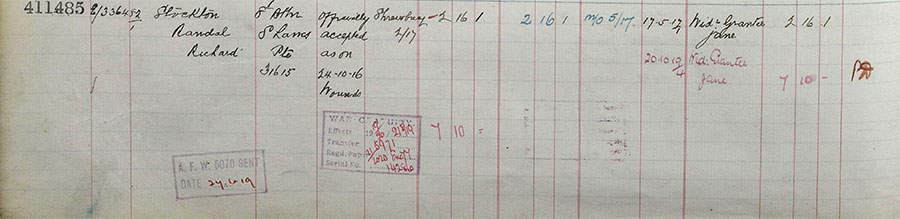 411485 E/336452/1 Stockton 8th Btn Officially Shrewsbury 2 16 1 2 16 1 M/O 5/17 17-5-17 Wid: Grantee 2 16 1
Randal S Lancs accepted 2/17 Jane
Richard Pte as on 20 10 19 Wid: Grantee
31615 24-10-16 Jane 7 10 -
Wounds
WAR GRATUITY 7 10 =
Effects
Transfer
Regd. Paper
Serial No.
A. F. W. 5070 SENT
DATE 24.6.19